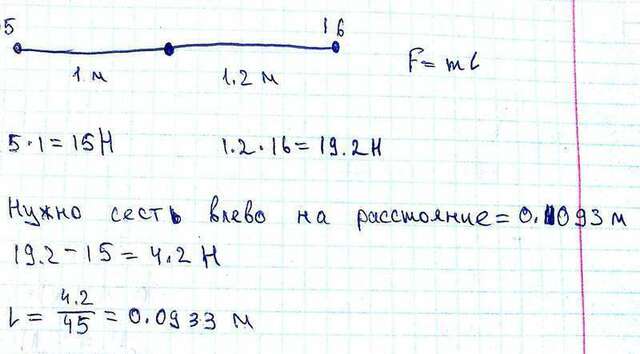 5 16
1 м 1.2 м F = ml
5 · 1 = 15 Н 1.2 · 16 = 19.2 Н
Нужно сесть влево на расстояние = 0.1093 м
19.2 - 15 = 4.2 Н
l = 4.2 / 45 = 0.0933 м